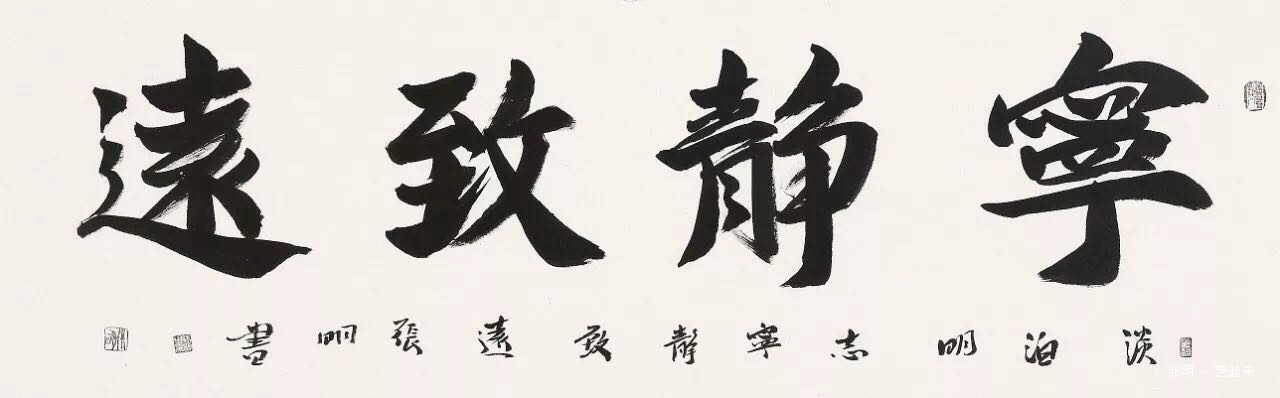 寧靜致遠
淡泊明志寧靜致遠張明書
张明 - 艺起来